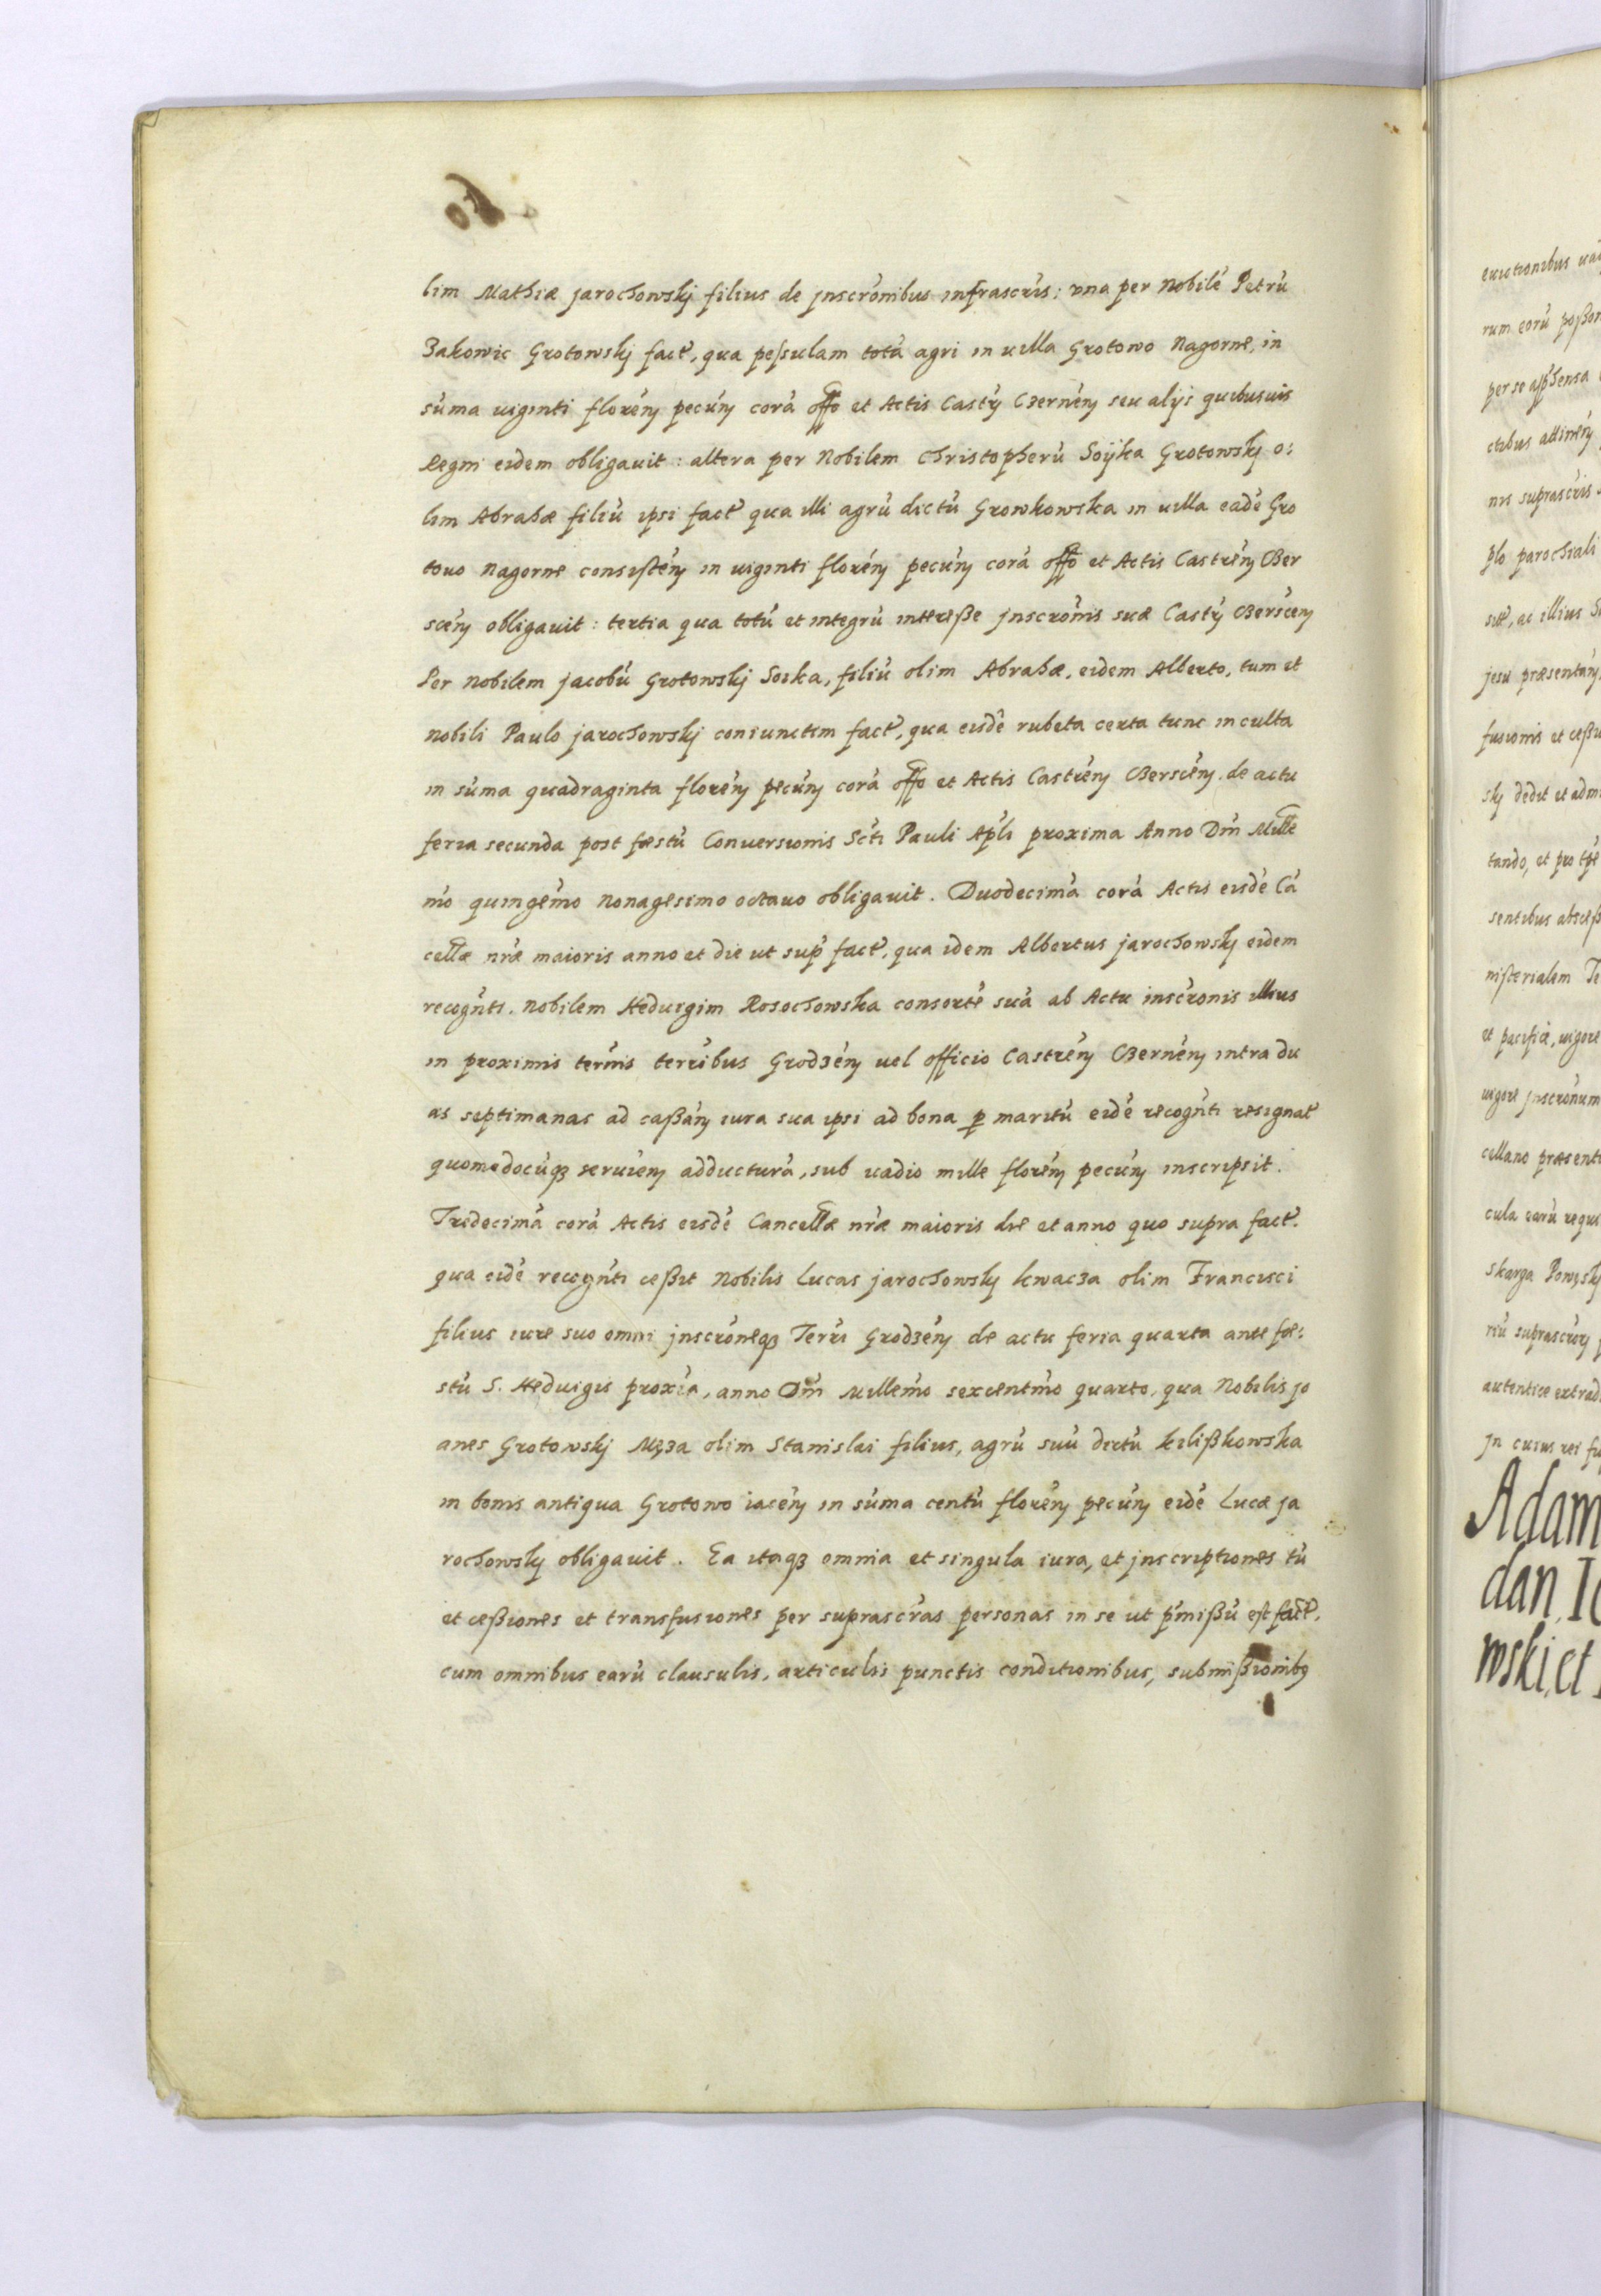 lim Mathiæ jarochowskj filius de jnscrónibus infrascris: vna per Nobilé Petrú
Zakowic Grotowskj fact, qua pessulam totá agri in uilla Grotowo Nagorne, in
súma uiginti florén pecún corá offo et Actis Castrn Czernén seu alijs quibusuis
Regni eidem obligauit: altera per Nobilem Christopherú Soÿka Grotowskj o:
lim Abrahæ filiú ipsi fact qua illi agrú dictú Growkowska in uilla eadé Gro
towo Nagorne consistén in uiginti florén pecún corá offo et Actis Castrén Ber
scén obligauit: tertia qua totú et integrú intereße jnscrónis suæ Castrn Berscén
Per Nobilem jacobú Grotowskj Soika, filiú olim Abrahæ, eidem Alberto, tum et
nobili Paulo jarochowskj coniunctim fact, qua eisdé rubeta certa tunc inculta
in súma quadraginta florén pecún corá offo et Actis Castrén Berscén. de actu
feria secunda post fœstú Conuersionis Scti Pauli Apli proxima Anno Dni Mille
mo quingemo Nonagesimo octauo obligauit. Duodecimá corá Actis eisdé Cá
cellæ nræ maioris anno et die ut sup fact, qua idem Albertus jarochowskj eidem
recognti. Nobilem Heduigim Rosochowska consorté suá ab Actu inscrónis illius
in proximis terminis terribus Grodzén uel officio Castrén Czernén intra du
as septimanas ad caßán iura sua ipsi ad bona p maritú eidé recognti resignat
quomodocúqz seruien adducturá, sub uadio mille florén pecún inscripsit.
Tredecimá corá Actis eisdé Cancellæ nræ maioris die et anno quo supra fact.
qua eidé recognti ceßit Nobilis Lucas jarochowskj kwacza olim Francisci
filius iure suo omni jnscróneqz Terri Grodzén de actu feria quarta ante fœ:
stú S. Heduigis proxía, anno Dni Millemo sexcentmo quarto, qua Nobilis jo
anes Grotowskj Męza olim Stanislai filius, agrú suú dictú kilißkowska
in bonis antiqua Grotowo iacén in súma centú florén pecún eidé Lucæ ja
rochowskj obligauit. Ea itaqz omnia et singula iura, et jnscriptiones tú
et ceßiones et transfusiones per suprascras personas in se ut pmißú est fact,
cum omnibus earú clausulis, articulis punctis conditionibus, submißionibq
euictionibus
rum eorú
per se
ctibus attinen
nis suprascris
plo parochiali
ac illius
jesu præsentan
fusionis et
skj dedit et
tando, et pro
sentibus
nisterialem
et pacifice, uigore
uigore jnscrónum
cellano
cula earú
skarga
riú
autentice
jn cuius rei
Adam
dan
wski, et